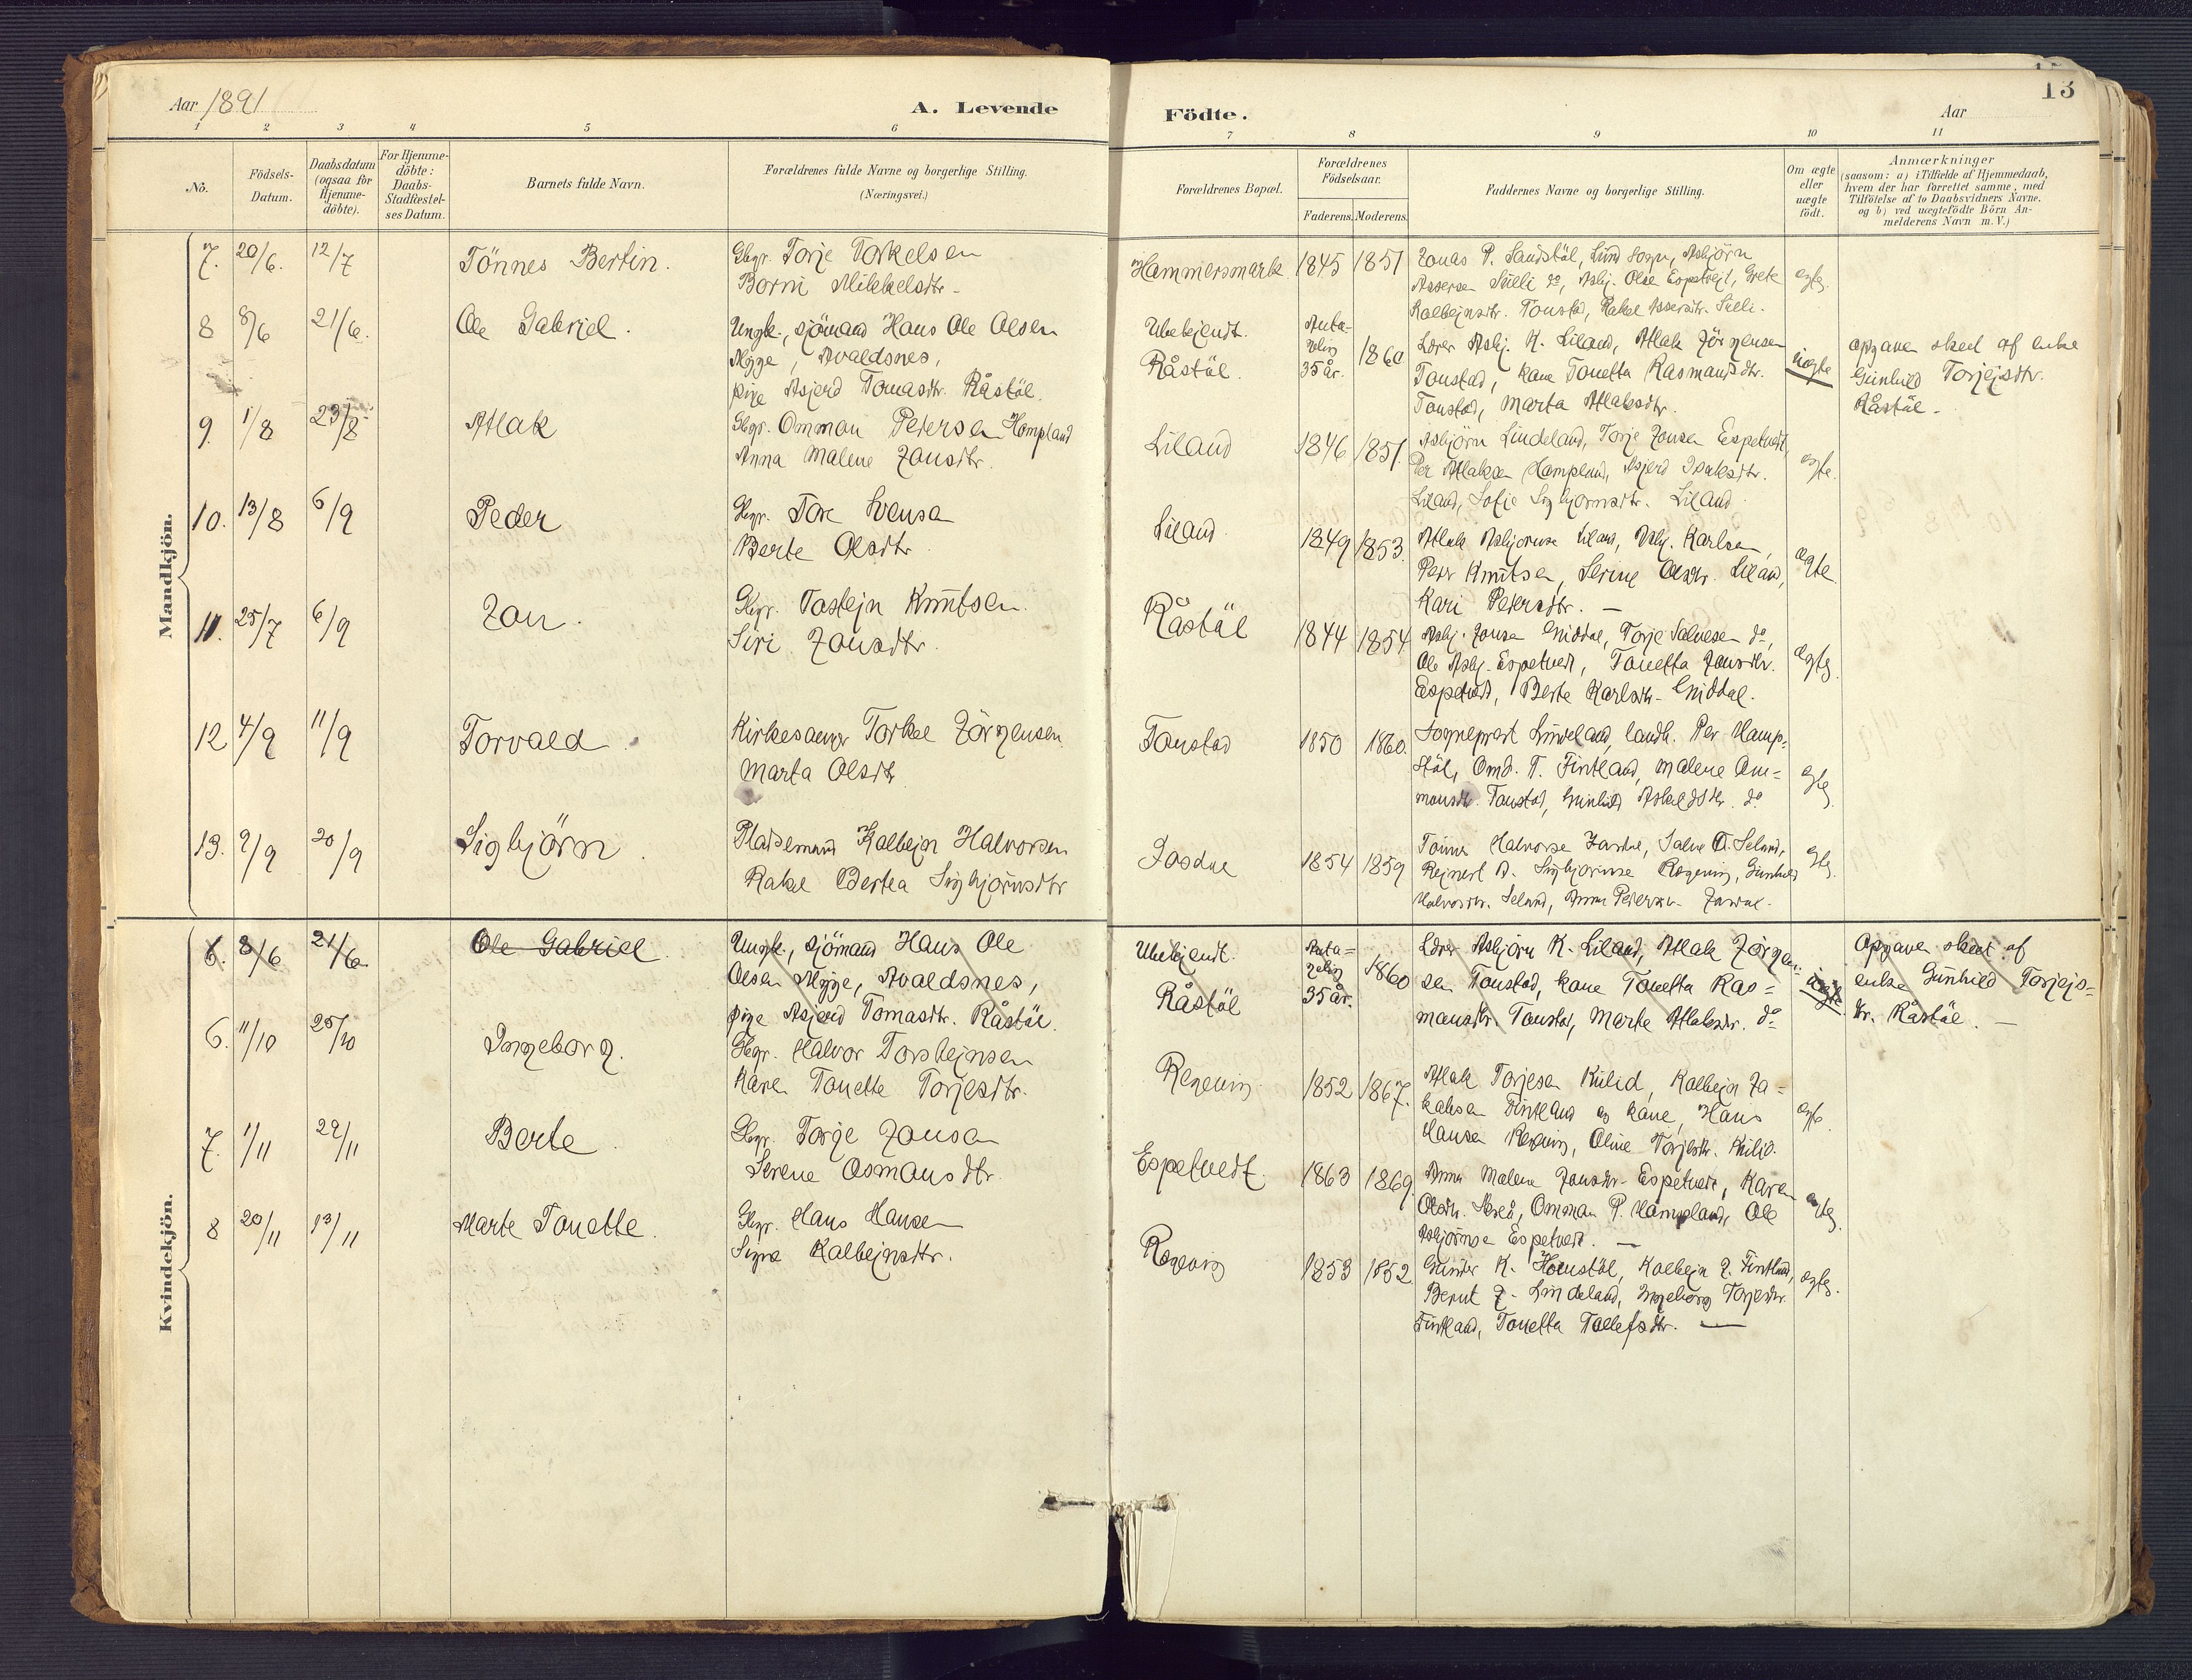 Aar 1891
A. Levende
Födte.
Aar
13
1 2 3 4 5 6 7 8 9 10 11
No.
Födsels-
Datum.
Daabsdatum
(ogsaa for
Hjemme-
döbte).
For Hjemme-
döbte:
Daabs-
Stadfæstel-
ses Datum.
Barnets fulde Navn.
Forældrenes fulde Navne og borgerlige Stilling.
(Næringsvei.)
Forældrenes Bopæl.
Forældrenes
Födselsaar.
Faderens. Moderens.
Faddernes Navne og borgerlige Stilling.
Om ægte
eller
uægte
födt.
Anmærkninger
(saasom: a) i Tilfælde af Hjemmedaab,
hvem der har forrettet samme, med
Tilföielse af to Daabsvidners Navne,
og b) ved uægtefödte Börn An-
melderens Navn m. V.)
Mandkjön.
7. 20/6. 12/7 Tönnes Bertin.
Gbgr. Torje Torkelsen
Borni Mikkelsdtr.
Hammersmark 1845 1851
Jonas P. Sandstöl, Lund Sogn, Asbjörn
Assersen Sulli do, Asbj. Olse Espetvejt, Grete
Kolbejnsdtr. Tonstad, Rakel Assersdtr. Sulli.
egte.
8 8/6 21/6. Ole Gabriel.
Ungk., sjömand Hans Ole Olsen
Myge, Avaldsnes,
pige Asjerd Tomasdtr. Råstöl.
Ubekjendt.
Råstöl.
Anta-
gelig
35 år. 1860
Lærer Asbj. K. Liland, Atlak Jörgensen
Tonstad, kone Tonetta Rasmundsdtr.
Tonstad, Marta Atlaksdtr.
uægte
opgaven skeet af enke
Gunhild Torjejsdtr.
Råstöl.
9. 1/8 23/8 Atlak
Gbgr. Omman Petersen Hompland
Anna Malene Jonsdtr.
Liland 1846 1851.
Asbjörn Lindeland, Torje Jonsen Espetvedt,
Per Atlaksen Hompland, Asjerd Isaksdtr.
Liland, Sofie Sigbjornsdtr. Liland
egte.
10. 13/8 6/9 Peder
Gbgr. Tore Svensen
Berte Olsdtr.
Liland 1849 1853.
Atlak Asbjornsen Liland, Asbj. Karlsen,
Peder Knutsen, Serine Olsdtr. Liland,
Kari Petersdtr. —
ægte.
11. 25/7 6/9 Jon.
Gbgr. Tostejn Knutsen.
Siri Jonsdtr.
Råstöl 1844 1854
Asbj. Jonsen Guddal, Torje Salvesen do,
Ole Asbj. Espetvedt, Tonetta Jonsdtr.
Espetvedt, Berte Karlsdtr. Guddal.
ægte.
12 4/9 11/9 Torvald.
Kirkesanger Torkel Jörgensen
Marta Olsdtr.
Tonstad 1850 1860.
Sogneprest Lindeland, landh. Per Homp-
stöl, Omd. T. Fintland, Malene Om-
mansdtr. Tonstad, Gunhild Askelsdtr. do
egte.
13. 9/9 20/9 Sigbjörn.
Pladsemand Kolbejn Halvorsen
Rakel Bertea Sigbjörnsdtr
Josdal 1854 1859
Tönnes Halvorsen Josdal, Salve O. Seland,
Rejnert B. Sigbjörnsen Rogeving, Gunhild
Halvorsdtr. Seland, Anna Pedersdtr. Josdal.
egte.
Kvindekjön.
6. 8/6 21/6. Ole Gabriel.
Ungk., sjömand Hans Ole
Olsen Myge, Avaldsnes,
pige Asjerd Tomasdtr. Råstöl.
Ubekjendt.
Råstöl
Anta-
gelig
35 år. 1860
Lærer Asbjörn K. Liland, Atlak Jörgen-
sen Tonstad, kone Tonetta Ras-
mansdtr. Tonstad, Marte Atlaksdtr. do
uægte.
Opgaven skeet af
enke Gunhild Torjejs-
dtr. Råstöl. —
6. 11/10 25/10 Ingeborg.
Gbgr. Halvor Torstejnsen
Karen Tonette Torjesdtr.
Rogeving 1852 1867.
Atlak Torjesen Kulid, Kolbejn Ja-
kobsen Fintland og kone, Hans
Hansen Rogeving, Oline Torjesdtr. Kulid.
egte.
7. 1/11 22/11 Berte.
Gbgr. Torje Jonsen
Serene Osmansdtr.
Espetvedt. 1863 1869.
Anna Malene Jonsdtr. Espetvedt, Karen
Olsdtr. Skreå, Omman P. Hompland, Ole
Asbjörnsen Espetvedt. —
egte.
8 20/11 13/11 Marte Tonette.
Gbgr. Hans Hansen
Signe Kolbejnsdtr.
Rogeving 1853 1852
Gunder K. Homstöl, Kolbejn J. Fintland,
Berut J. Lindeland, Ingeborg Torjesdtr.
Fintland, Tonetta Tollefsdtr. —
egte.